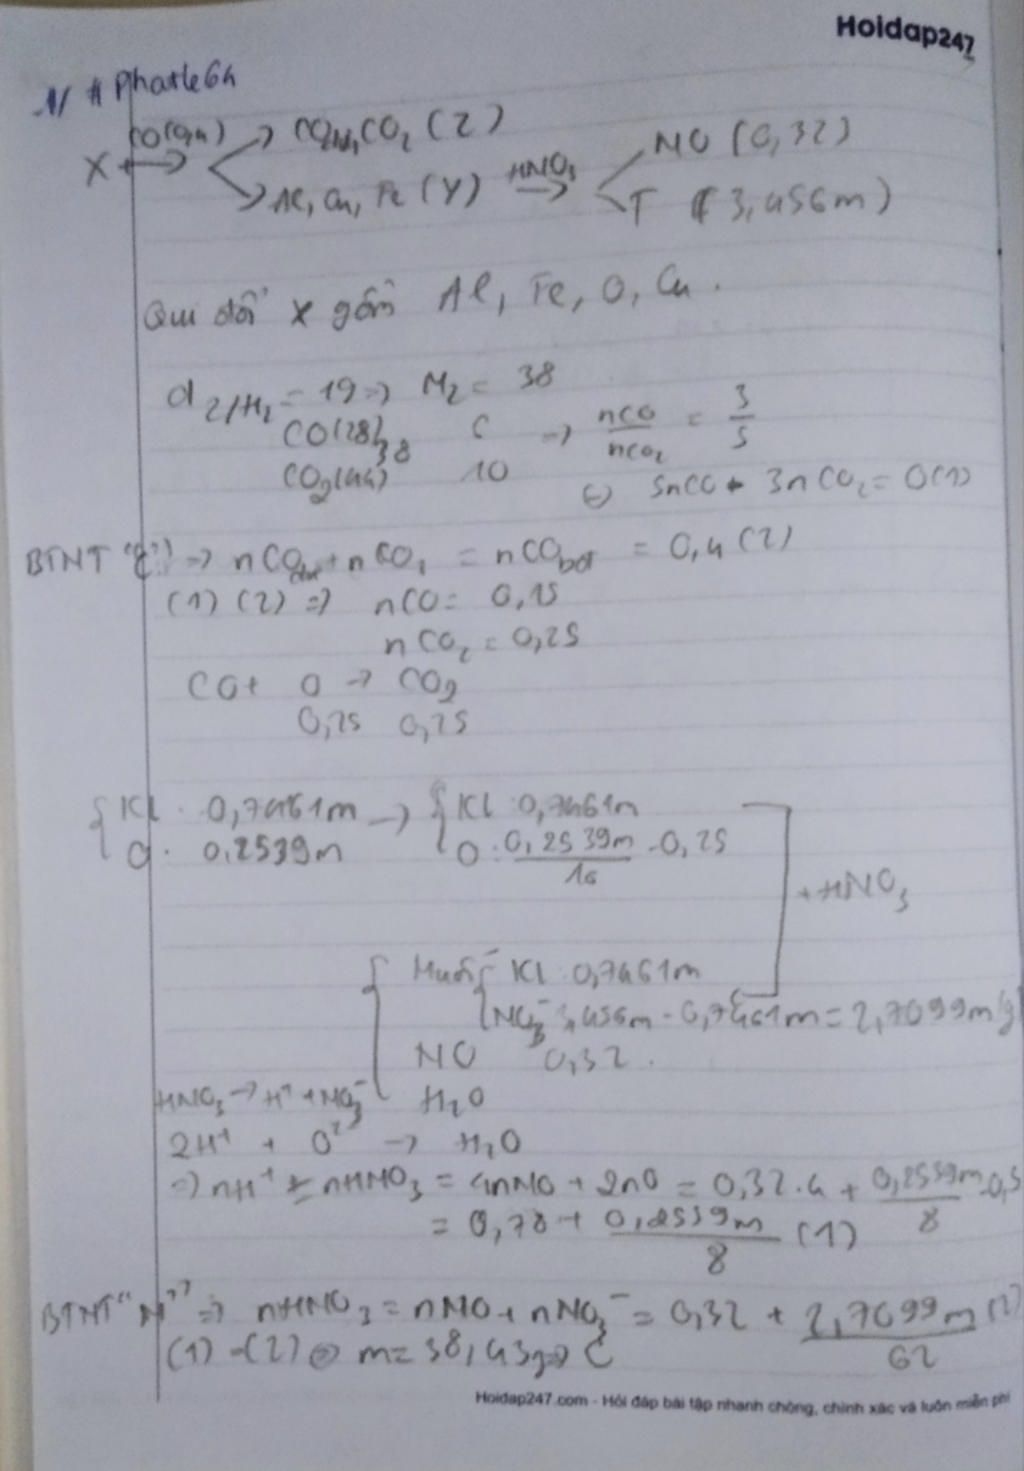 Hoidap247
1/ # Phatle64
CO(0,4) → CO, CO₂ (Z)
X → Al, Cu, Fe (Y) HNO₃ → NO (0,32)
T (3,456m)
Qui đổi X gồm Al, Fe, O, Cu.
d Z/H₂ = 19 => M_Z = 38
CO(28) 6 => nCO/nCO₂ = 3/5
38
CO₂(44) 10
<=> 5nCO - 3nCO₂ = 0 (1)
BTNT "C" => nCO dư + nCO₂ = nCO bđ = 0,4 (2)
(1) (2) => nCO = 0,15
nCO₂ = 0,25
CO + O → CO₂
0,25 0,25
{ Kl : 0,7461m → { Kl : 0,7461m
O : 0,2539m O : 0,2539m/16 - 0,25
+ HNO₃
{ Muối { Kl : 0,7461m
NO₃⁻ 3,456m - 0,7461m = 2,7099m (g)
NO 0,32.
HNO₃ → H⁺ + NO₃⁻ H₂O
2H⁺ + O²⁻ → H₂O
=> nH⁺ = nHNO₃ = 4nNO + 2nO = 0,32.4 + 0,2539m/8 - 0,5
= 0,78 + 0,2539m/8 (1)
BTNT "N" => nHNO₃ = nNO + nNO₃⁻ = 0,32 + 2,7099m/62 (2)
(1) - (2) => m = 38,43g => C
Hoidap247.com - Hỏi đáp bài tập nhanh chóng, chính xác và luôn miễn phí